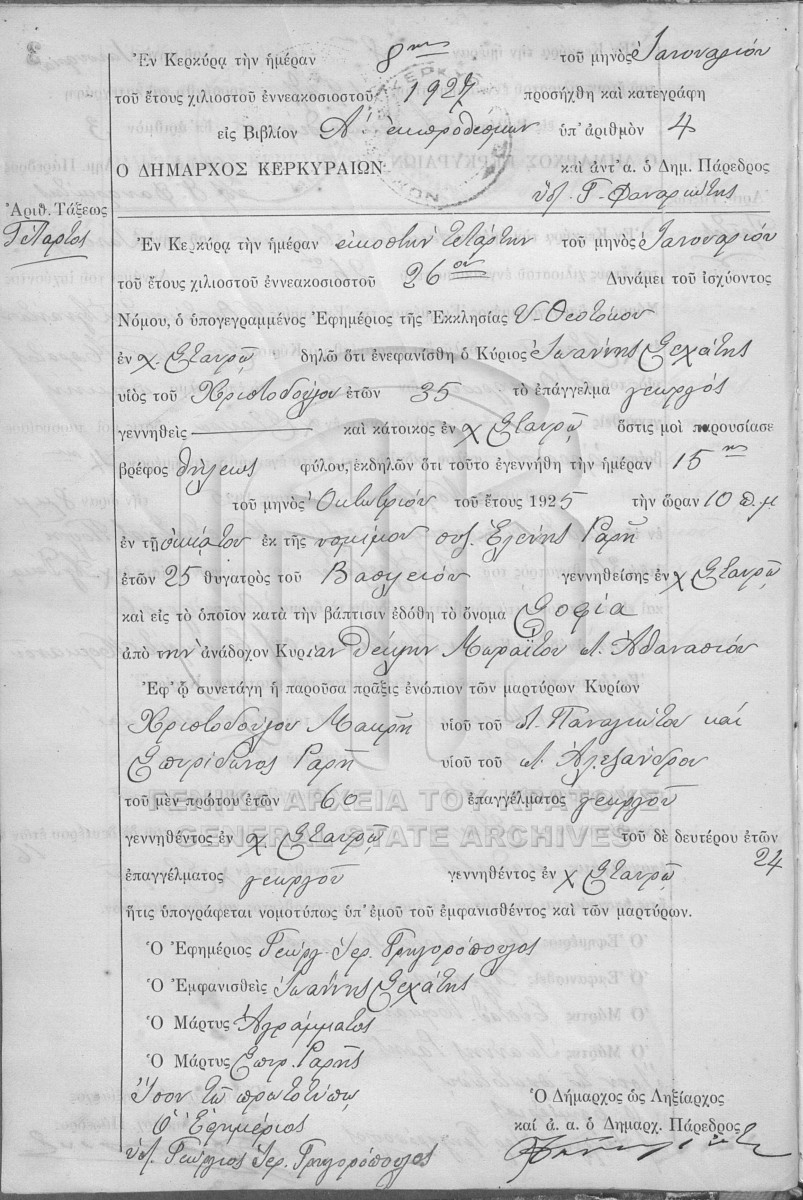 Ἐν Κερκύρᾳ τὴν ἡμέραν 8ην τοῦ μηνὸς Ἰανουαρίου
τοῦ ἔτους χιλιοστοῦ ἐννεακοσιοστοῦ 1927 προσήχθη καὶ κατεγράφη
εἰς Βιβλίον Α' ἐκπροθέσμων ὑπ' ἀριθμὸν 4
Ο ΔΗΜΑΡΧΟΣ ΚΕΡΚΥΡΑΙΩΝ καὶ ἀντ' α. ὁ Δημ. Πάρεδρος
ὑπ. Γ. Φαναριώτης
Ἀριθ. Τάξεως
Τέταρτος
Ἐν Κερκύρᾳ τὴν ἡμέραν εἰκοστὴν τετάρτην τοῦ μηνὸς Ἰανουαρίου
τοῦ ἔτους χιλιοστοῦ ἐννεακοσιοστοῦ 26ου Δυνάμει τοῦ ἰσχύοντος
Νόμου, ὁ ὑπογεγραμμένος Ἐφημέριος τῆς Ἐκκλησίας Υ. Θεοτόκου
ἐν χ. Σταυρῷ δηλῶ ὅτι ἐνεφανίσθη ὁ Κύριος Ἰωάννης Σεχάτης
υἱὸς τοῦ Χριστοδούλου ἐτῶν 35 τὸ ἐπάγγελμα γεωργὸς
γεννηθεὶς καὶ κάτοικος ἐν χ Σταυρῷ ὅστις μοὶ παρουσίασε
βρέφος θήλεως φύλου, ἐκδηλῶν ὅτι τοῦτο ἐγεννήθη τὴν ἡμέραν 15ην
τοῦ μηνὸς Ὀκτωβρίου τοῦ ἔτους 1925 τὴν ὥραν 10 π.μ
ἐν τῇ οἰκίᾳ του ἐκ τῆς νομίμου συζ. Ἑλένης Ραρῆ
ἐτῶν 25 θυγατρὸς τοῦ Βασιλείου γεννηθείσης ἐν χ Σταυρῷ
καὶ εἰς τὸ ὁποῖον κατὰ τὴν βάπτισιν ἐδόθη τὸ ὄνομα Σοφία
ἀπὸ τὴν ἀνάδοχον Κυρίαν Θέκλην Μωραΐτου Ἀθανασίου
Ἐφ' ᾧ συνετάγη ἡ παροῦσα πρᾶξις ἐνώπιον τῶν μαρτύρων Κυρίων
Χριστοδούλου Μακρῆ υἱοῦ τοῦ Παναγιώτου καὶ
Σπυρίδωνος Ραρῆ υἱοῦ τοῦ Ἀλεξάνδρου
τοῦ μὲν πρώτου ἐτῶν 60 ἐπαγγέλματος γεωργοῦ
ΓΕΝΙΚΑ ΑΡΧΕΙΑ ΤΟΥ ΚΡΑΤΟΥΣ
GENERAL STATE ARCHIVES
γεννηθέντος ἐν χ. Σταυρῷ τοῦ δὲ δευτέρου ἐτῶν 24
ἐπαγγέλματος γεωργοῦ γεννηθέντος ἐν χ Σταυρῷ
ἥτις ὑπογράφεται νομοτύπως ὑπ' ἐμοῦ τοῦ ἐμφανισθέντος καὶ τῶν μαρτύρων.
Ὁ Ἐφημέριος Γεώργ. Ἱερ. Γρηγορόπουλος
Ὁ Ἐμφανισθεὶς Ἰωάννης Σεχάτης
Ὁ Μάρτυς Ἀγράμματος
Ὁ Μάρτυς Σπυρ. Ραρῆς
Ἴσον τῷ πρωτοτύπῳ
Ὁ Ἐφημέριος
ὑπ. Γεώργιος Ἱερ. Γρηγορόπουλος
Ὁ Δήμαρχος ὡς Ληξίαρχος
καὶ ἀ. α. ὁ Δημαρχ. Πάρεδρος